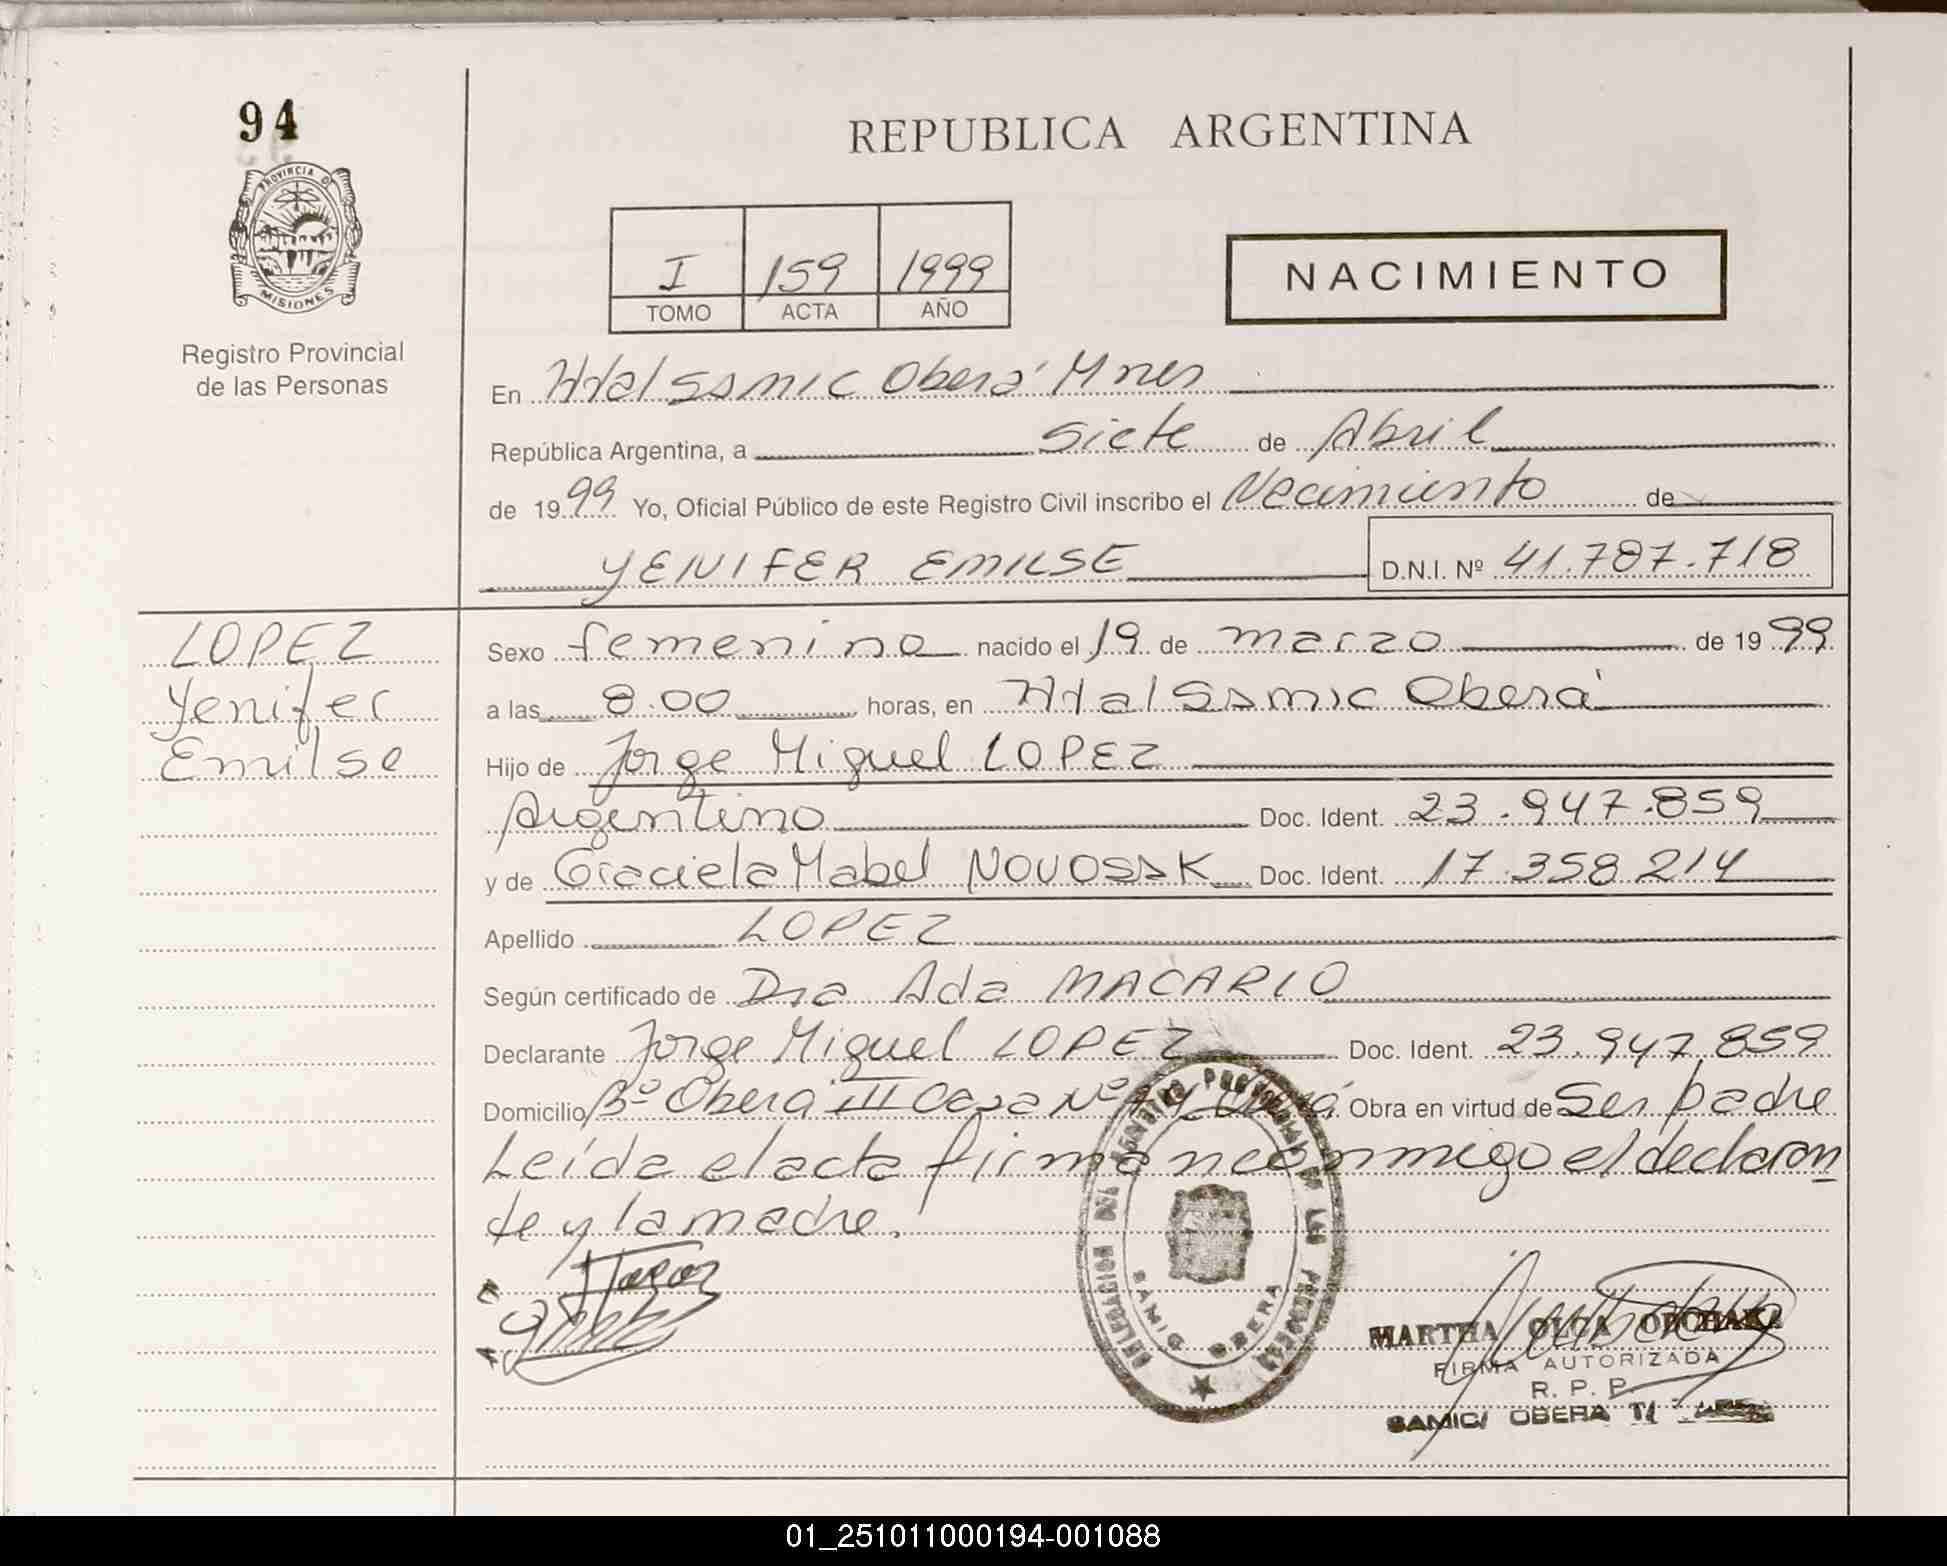 94
REPUBLICA ARGENTINA
PROVINCIA D
MISIONES
Registro Provincial
de las Personas
I 159 1999
TOMO ACTA AÑO
NACIMIENTO
En Htal SSMIC Oberá Mnes
República Argentina, a siete de Abril
de 1999 Yo, Oficial Público de este Registro Civil inscribo el Necimiento de
YENIFER EMILSE D.N.I. Nº 41.787.718
LOPEZ
Yenifer
Emilse
Sexo femenino nacido el 19 de marzo de 1999
a las 8.00 horas, en Htal SSMIC Oberá
Hijo de Jorge Miguel LOPEZ
Argentino Doc. Ident. 23.947.859
y de Graciela Mabel NOVOSAK Doc. Ident. 17.358214
Apellido LOPEZ
Según certificado de Dra Ada MACARIO
Declarante Jorge Miguel LOPEZ Doc. Ident. 23.947.859
Domicilio Bº Oberá III Casa Nº Obra en virtud de Ser padre
Leída el acta firman conmigo el declaran
te y la madre.
DELEGACION DEL REGISTRO PROVINCIAL DE LAS PERSONAS
SAMIC OBERA
MARTHA OLGA
FIRMA AUTORIZADA
R. P. P.
SAMIC/ OBERA
01_251011000194-001088